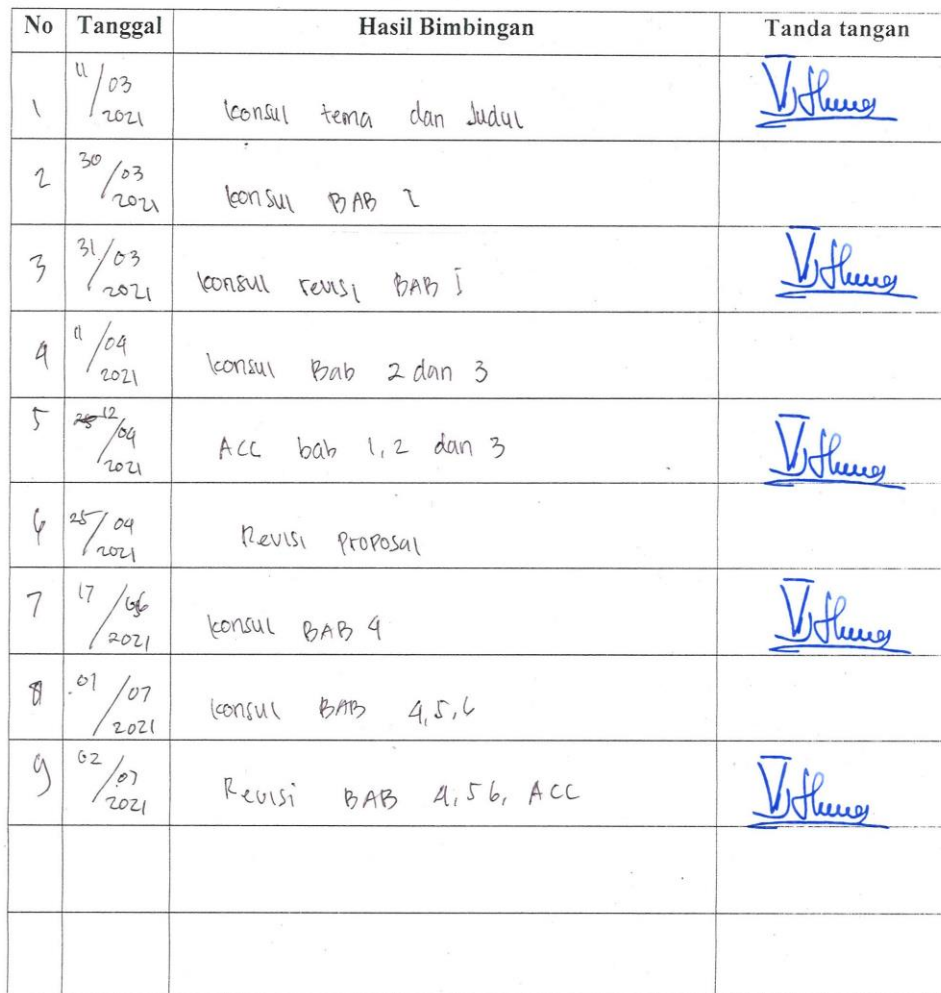 No Tanggal Hasil Bimbingan Tanda tangan
1 11/03 2021 konsul tema dan Judul
2 30/03 2021 konsul BAB I
3 31/03 2021 konsul revisi BAB I
4 11/04 2021 konsul Bab 2 dan 3
5 12/04 2021 ACC bab 1,2 dan 3
6 25/04 2021 Revisi Proposal
7 17/06 2021 konsul BAB 4
8 01/07 2021 konsul BAB 4,5,6
9 02/07 2021 Revisi BAB 4,5 6, ACC